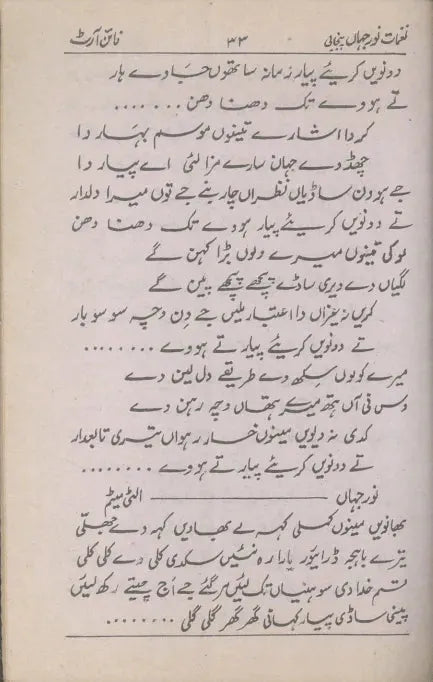 نغمات نور جہاں پنجابی ۳۳ فائن آرٹ
دونویں کریئے پیار زمانہ ساتھوں جاوے ہار
تے ہووے تک دھنا دھن .......
کردا اشارے تینوں موسم بہار دا
چھڈ دے جہان سارے مزا لئی اے پیار دا
جے ہو دن ساڈیاں نظراں چار بنے جے توں میرا دلدار
تے دونویں کریئے پیار ہووے تک دھنا دھن
لوکی تینوں میرے ولوں بڑا کہن گے
لگیاں دے ویری ساڈے پچھے پچھے پین گے
کریں نہ غیراں دا اعتبار ملیں جے دن وچہ سو سو بار
تے دونویں کریئے پیار تے ہووے ........
میرے کولوں سکھ دے طریقے دل لین دے
دس نی آں ہتھ میرے ہتھاں وچہ رہن دے
کدی نہ دیویں مینوں خار رہواں تیری تابعدار
تے دونویں کریئے پیار تے ہووے ........
نور جہاں ــــــــــ الٹی میٹم
بھانویں مینوں کملی کہہ لے بھانویں کہہ دے جھلی
تیرے باہجہ ڈرائیور یارا رہ نئیں سکدی کلی دے کلی کلی
قسم خدا دی سوہنیاں تک لئیں مر گئے جے اج چیتے رکھ لئیں
پینی ساڈی پیار کہانی گھر گھر گلی گلی ........